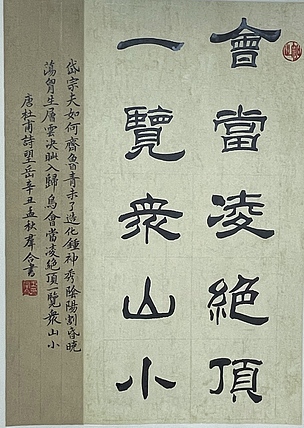 會當凌絕頂
一覽衆山小
岱宗夫如何齊魯青未了造化鍾神秀陰陽割昏曉
蕩胷生層雲決眦入歸鳥會當凌絕頂一覽衆山小
唐杜甫詩望岳辛丑孟秋群合書